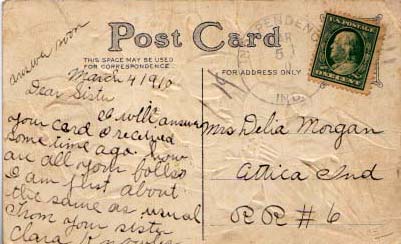 Post Card
THIS SPACE MAY BE USED
FOR CORRESPONDENCE
FOR ADDRESS ONLY
PENDENC
MAR
5
IND.
U.S. POSTAGE
answer soon
March 4 1910
Dear Sister
I will answer
your card I received
some time ago. how
are all your folks
I am just about
the same as usual
From your sister
Clara
Mrs Delia Morgan
Attica Ind
RR # 6